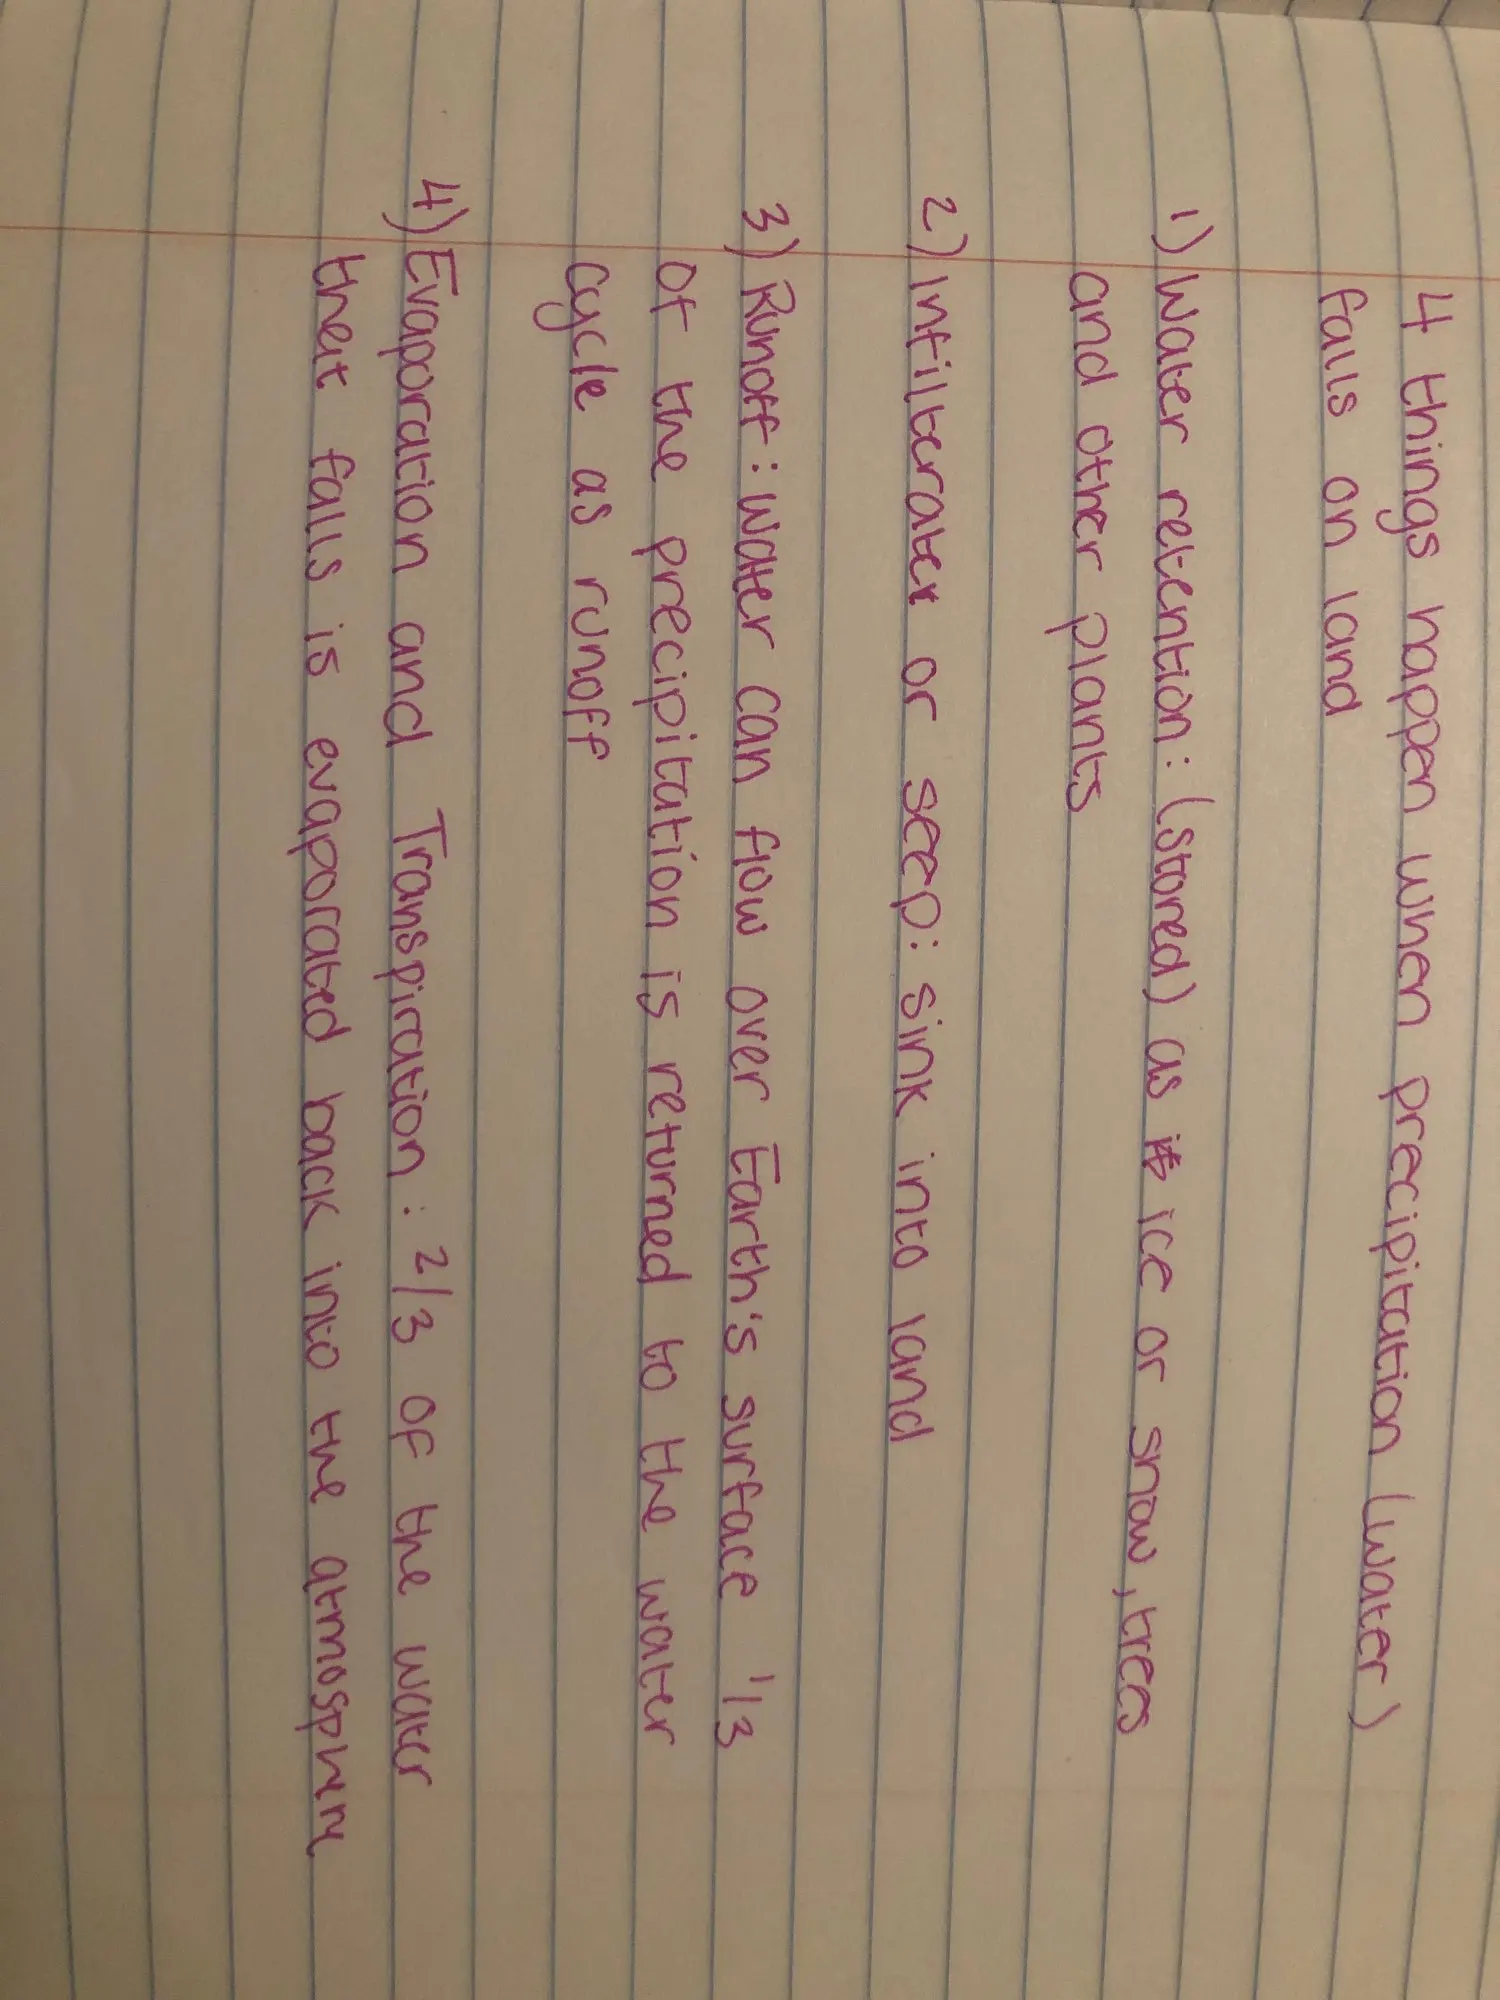 4 things happen when precipitation (water)
falls on land
1) Water retention: (stored) as ice or snow, trees
and other plants
2) Infilterater or seep: sink into land
3) Runoff: Water can flow over Earth's surface 1/3
of the precipitation is returned to the water
cycle as runoff
4) Evaporation and Transpiration: 2/3 of the water
that falls is evaporated back into the atmosphere